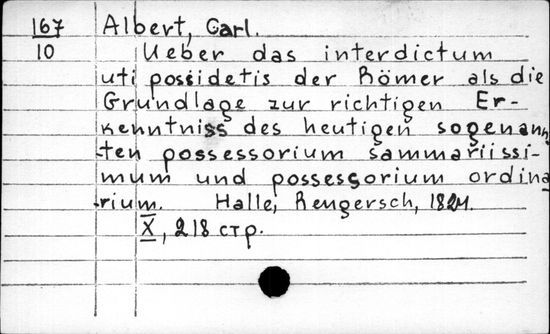 167 Albert, Carl.
10 Ueber das interdictum
uti possidetis der Römer als die
Grundlage zur richtigen Er-
kenntniss des heutigen sogenann
-ten possessorium sammariissi-
mum und possessorium ordina
-rium. Halle, Rengersch, 1824.
X, 218 стр.